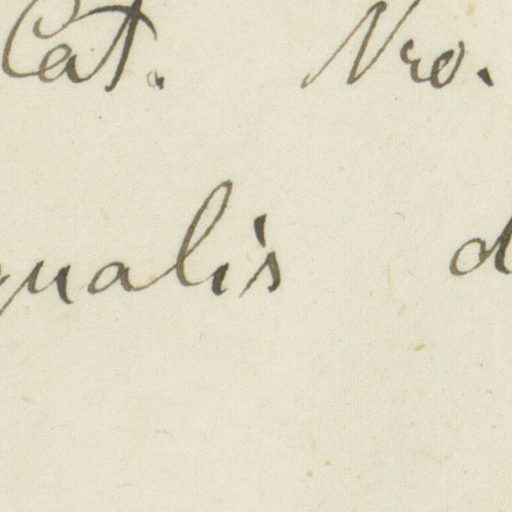 Cat. Nro.
qualis d